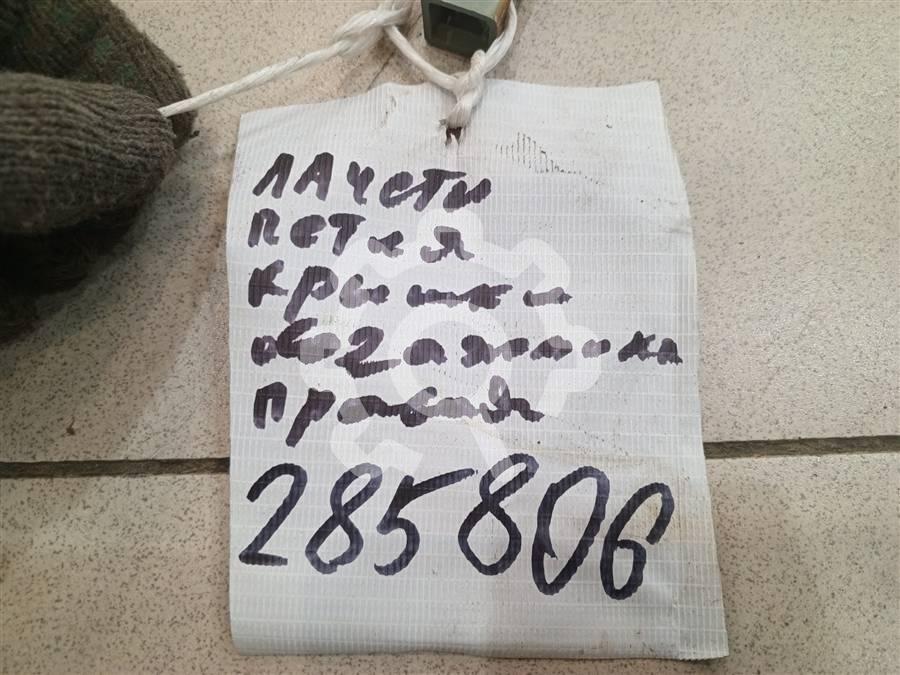 ЛАЧЕТИ
ПЕТЛЯ
крышки
багажника
правая
285806